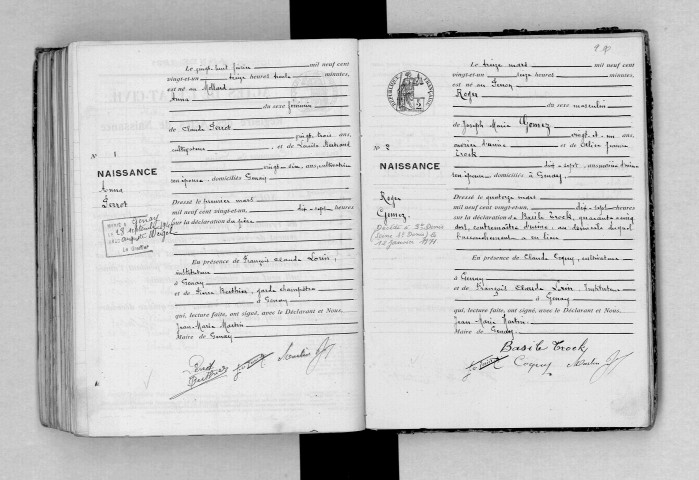 Le vingt huit février mil neuf cent
vingt-et-un treize heures trente minutes,
est né au Mollard
Anna
du sexe féminin
de Claude Perret
vingt trois ans,
cultivateur et de Louise
vingt six ans, cultivatrice
son épouse domiciliés Genay
N° 1
NAISSANCE
Anna
Perret
Dressé le premier mars
mil neuf cent vingt-et-un, dix-sept heures
sur la déclaration du père
MARIÉ À Genay
LE 28 septembre
AVEC
Le Greffier
En présence de François Claude Lorin,
instituteur
à Genay
et de Pierre Berthier, garde champêtre
à Genay
qui, lecture faite, ont signé, avec le Déclarant et Nous.
Jean-Marie Martin
Maire de Genay
Perret
Berthier Lorin Martin
RÉPUBLIQUE FRANÇAISE
Le treize mars mil neuf cent
vingt-et-un treize heures minutes,
est né au Genay
Roger
du sexe masculin
de Joseph Marie Gomez
vingt et un ans,
ouvrier d'usine et de
Trock
dix-sept, ans ouvrière d'usine
son épouse domiciliés à Genay
N° 2
NAISSANCE
Roger
Gomez
Dressé le quatorze mars
mil neuf cent vingt-et-un, dix-sept heures
sur la déclaration de Basile Trock, quarante cinq
ans, contremaître d'usine, au domicile duquel
l'accouchement a eu lieu
Décédé à St Denis
(Seine St Denis) le
12 janvier 1971
En présence de Claude Coquy, cultivateur
à Genay
et de François Claude Lorin, Instituteur
à Genay
qui, lecture faite, ont signé, avec le Déclarant et Nous.
Jean-Marie Martin
Maire de Genay
Basile Trock
Lorin Coquy Martin